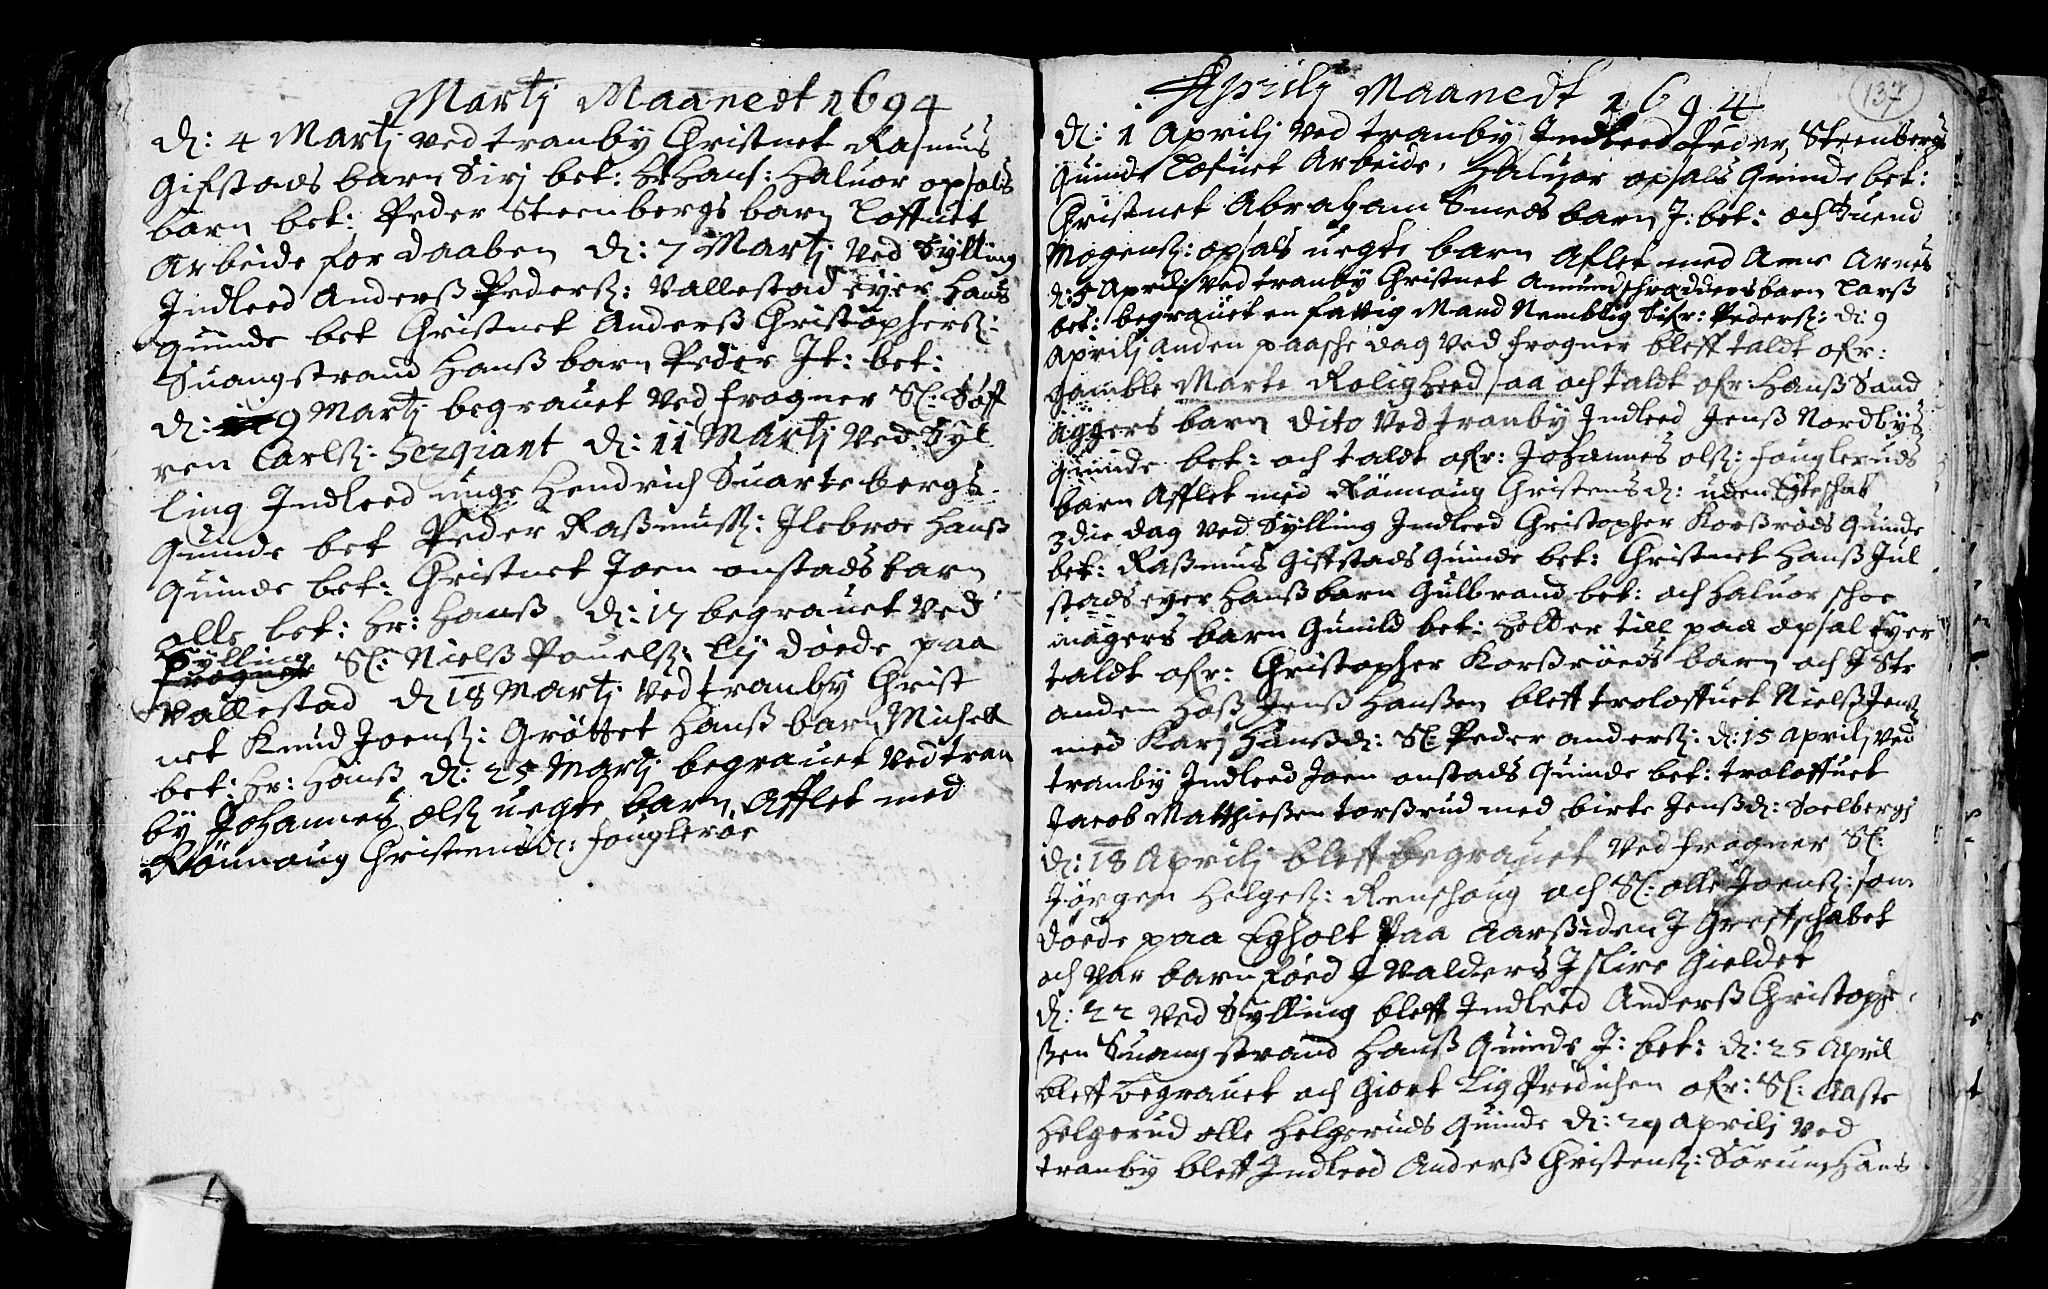 Martj Maanedt 1694
d: 4 Martj ved tranby Christnet Rasmus
Gifstads barn Sirj bet: Hr Hans: Haluor opsals
barn bet: Peder Steenbergs barn Loffuet
Arbeide for daaben d: 7 Martj ved Sylling
Indleed Anderß Peders: Vallestad eyer Hans
quinde bet Christnet Anderß Christophers:
Suangstrand Hanß barn Peder It: bet:
d: 9 Martj begrauet ved frogner Sl: Söff
ren Carls: Sergiant d: 11 Martj ved Syl
ling Indleed unge Hendrich Suartebergs
quinde bet Peder Raßmuss: Ilebroe Hanß
quinde bet: Christnet Joen onstads barn
olle bet: Hr: Hanß d: 17 begrauet ved
Sylling
frogner Sl: Nielß Pouels: Lij döede paa
Vallestad d 18 Martj ved tranby Christ
net Knud Joens: Gröttet Hanß barn Michell
bet: Hr: Hanß d: 25 Martj begrauet ved tran
by Johannes ols uegte barn Afflet med
Rönnoug Christensd: fougleröe
137
Aprilj Maanedt 1694
d: 1 Aprilj ved tranby Indleed Peder Steenbergs
quinde Lofuet Arbeide, Haluor opsals quinde bet:
Christnet Abraham Smeds barn J: bet: och Suend
Mogens: opsals uegte barn Aflet med Arnes
d: 5 Aprilj ved tranby Christnet Amund schrædders barn Larß
bet: begrauet en fattig Mand Nemblig Sifr: Peders: d: 9
Aprilj anden paasche dag ved frogner bleff taldt ofr:
gamble Marte Roligheed saa och taldt ofr: Hanß Sand
aggers barn dito ved tranby Indleed Jenß Nordbys
quinde bet: och taldt ofr: Johannes ols: fougleruds
barn Afflet med Rönnoug Christensd: uden Egteschab
3die dag ved Sylling Indleed Christopher Korßröds quinde
bet: Raßmus Giffstads quinde bet: Christnet Hanß Jul
stads eyer Hanß barn Gulbrand bet: och Haluor schoe
magers barn Gunild bet: Holder till paa opsal Eyer
taldt ofr: Christopher Korßröeds barn och J Str
anden Hoß Jenß Hanßen bleff troloffuet Nielß Jens
med Karj Hanßd: Sl: Peder anders: d: 15 Aprilj ved
tranby Indleed Joen onstads quinde bet: troloffuet
Jacob Matthießen torßrud med birte Jenßd: Soelbergs
d: 18 Aprilj bleff begrauet ved frogner Sl:
Jörgen Helges: Renshoug och Sl: olle Joens: som
döede paa Egholt Paa Aarßiden J Greffschabet
och var barn föed J Valders J slire Gieldet
d: 22 ved Sylling bleff Indleed Anderß Christoph
ßen Suangstrand Hanß quinde J: bet: d: 25 April
bleff begrauet och Giort Lig Predichen ofr: Sl: Aaste
Helgerud olle Helgeruds quinde d: 29 Aprilj ved
tranby bleff Indleed Anderß Christens: Sörum Hans